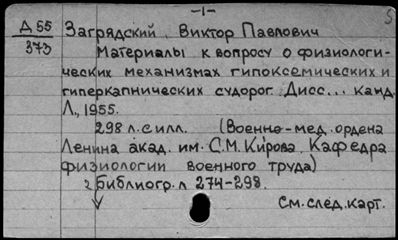 -1-
Д 55
373
Загрядский, Виктор Павлович
Материалы к вопросу о физиологи-
ческих механизмах гипоксемических и
гиперкапнических судорог. Дисс... канд.
Л., 1955.
298 л. с илл. (Военно-мед. ордена
Ленина акад. им. С.М. Кирова. Кафедра
физиологии военного труда)
Библиогр. л 274-298.
См. след. карт.